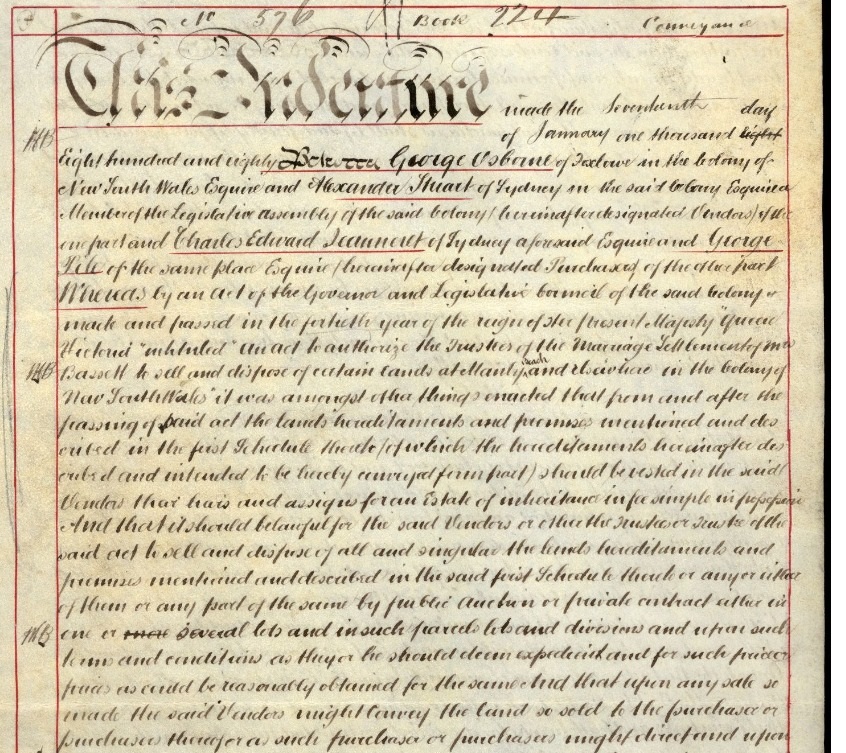 No 576 Book 224 Conveyance
This Indenture made the Seventeenth day
of January one thousand eight
Eight hundred and eighty Between George Osborne of Foxlowe in the Colony of
New South Wales Esquire and Alexander Stuart of Sydney in the said Colony Esquire a
Member of the Legislative assembly of the said Colony (hereinafter designated Vendors) of the
one part and Charles Edward Jeanneret of Sydney aforesaid Esquire and George
Pile of the same place Esquire (hereinafter designated Purchasers) of the other part
Whereas by an act of the Governor and Legislative Council of the said Colony
made and passed in the fortieth year of the reign of Her present Majesty Queen
Victoria "intituled" An act to authorize the Trustees of the Marriage Settlement of Mrs
Bassett to sell and dispose of certain lands at Manly Beach and elsewhere in the Colony of
New South Wales" it was amongst other things enacted that from and after the
passing of said act the lands hereditaments and premises mentioned and des
cribed in the first Schedule thereto (of which the hereditaments hereinafter des
cribed and intended to be hereby conveyed form part) should be vested in the said
Vendors their heirs and assigns for an Estate of inheritance in fee simple in possession
And that it should be lawful for the said Vendors or other the Trustees or Trustee of the
said act to sell and dispose of all and singular the lands hereditaments and
premises mentioned and described in the said first Schedule thereto or any or either
of them or any part of the same by public Auction or private contract either in
one or more several lots and in such parcels lots and divisions and upon such
terms and conditions as they or he should deem expedient and for such price or
prices as could be reasonably obtained for the same And that upon any sale so
made the said Vendors might Convey the land so sold to the purchaser or
purchasers thereof or as such purchaser or purchasers might direct and upon